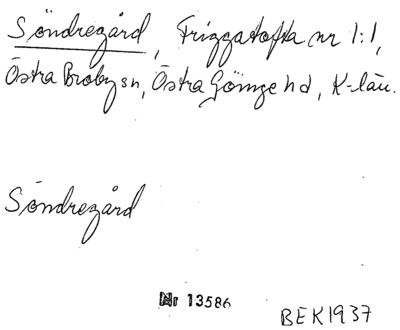 Söndregård, Friggatofta nr 1:1,
Östra Broby sn, Östra Göinge hd, K-län.
Söndregård
Nr 13586
BEK 1937